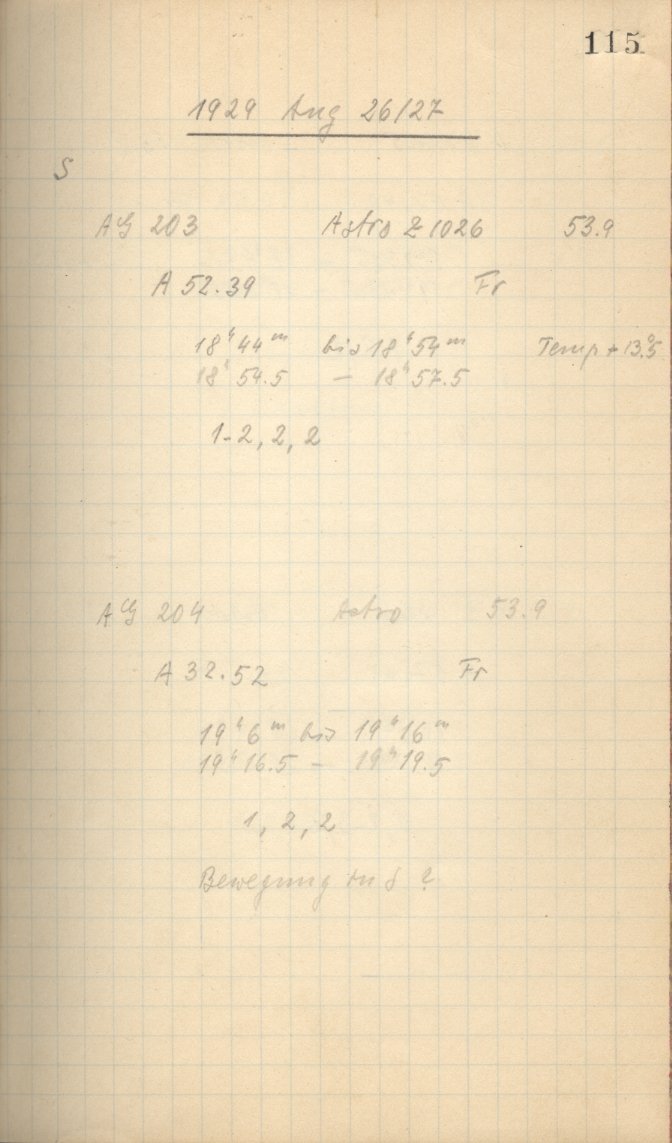 115
1929 Aug 26/27
S
AG 203 Astro Z 1026 53.9
A 52.39 Fr
18ʰ44ᵐ bis 18ʰ54ᵐ Temp + 13.°5
18ʰ54.5 — 18ʰ57.5
1-2, 2, 2
AG 204 Astro 53.9
A 32.52 Fr
19ʰ6ᵐ bis 19ʰ16ᵐ
19ʰ16.5 — 19ʰ19.5
1, 2, 2
Bewegung in δ ?